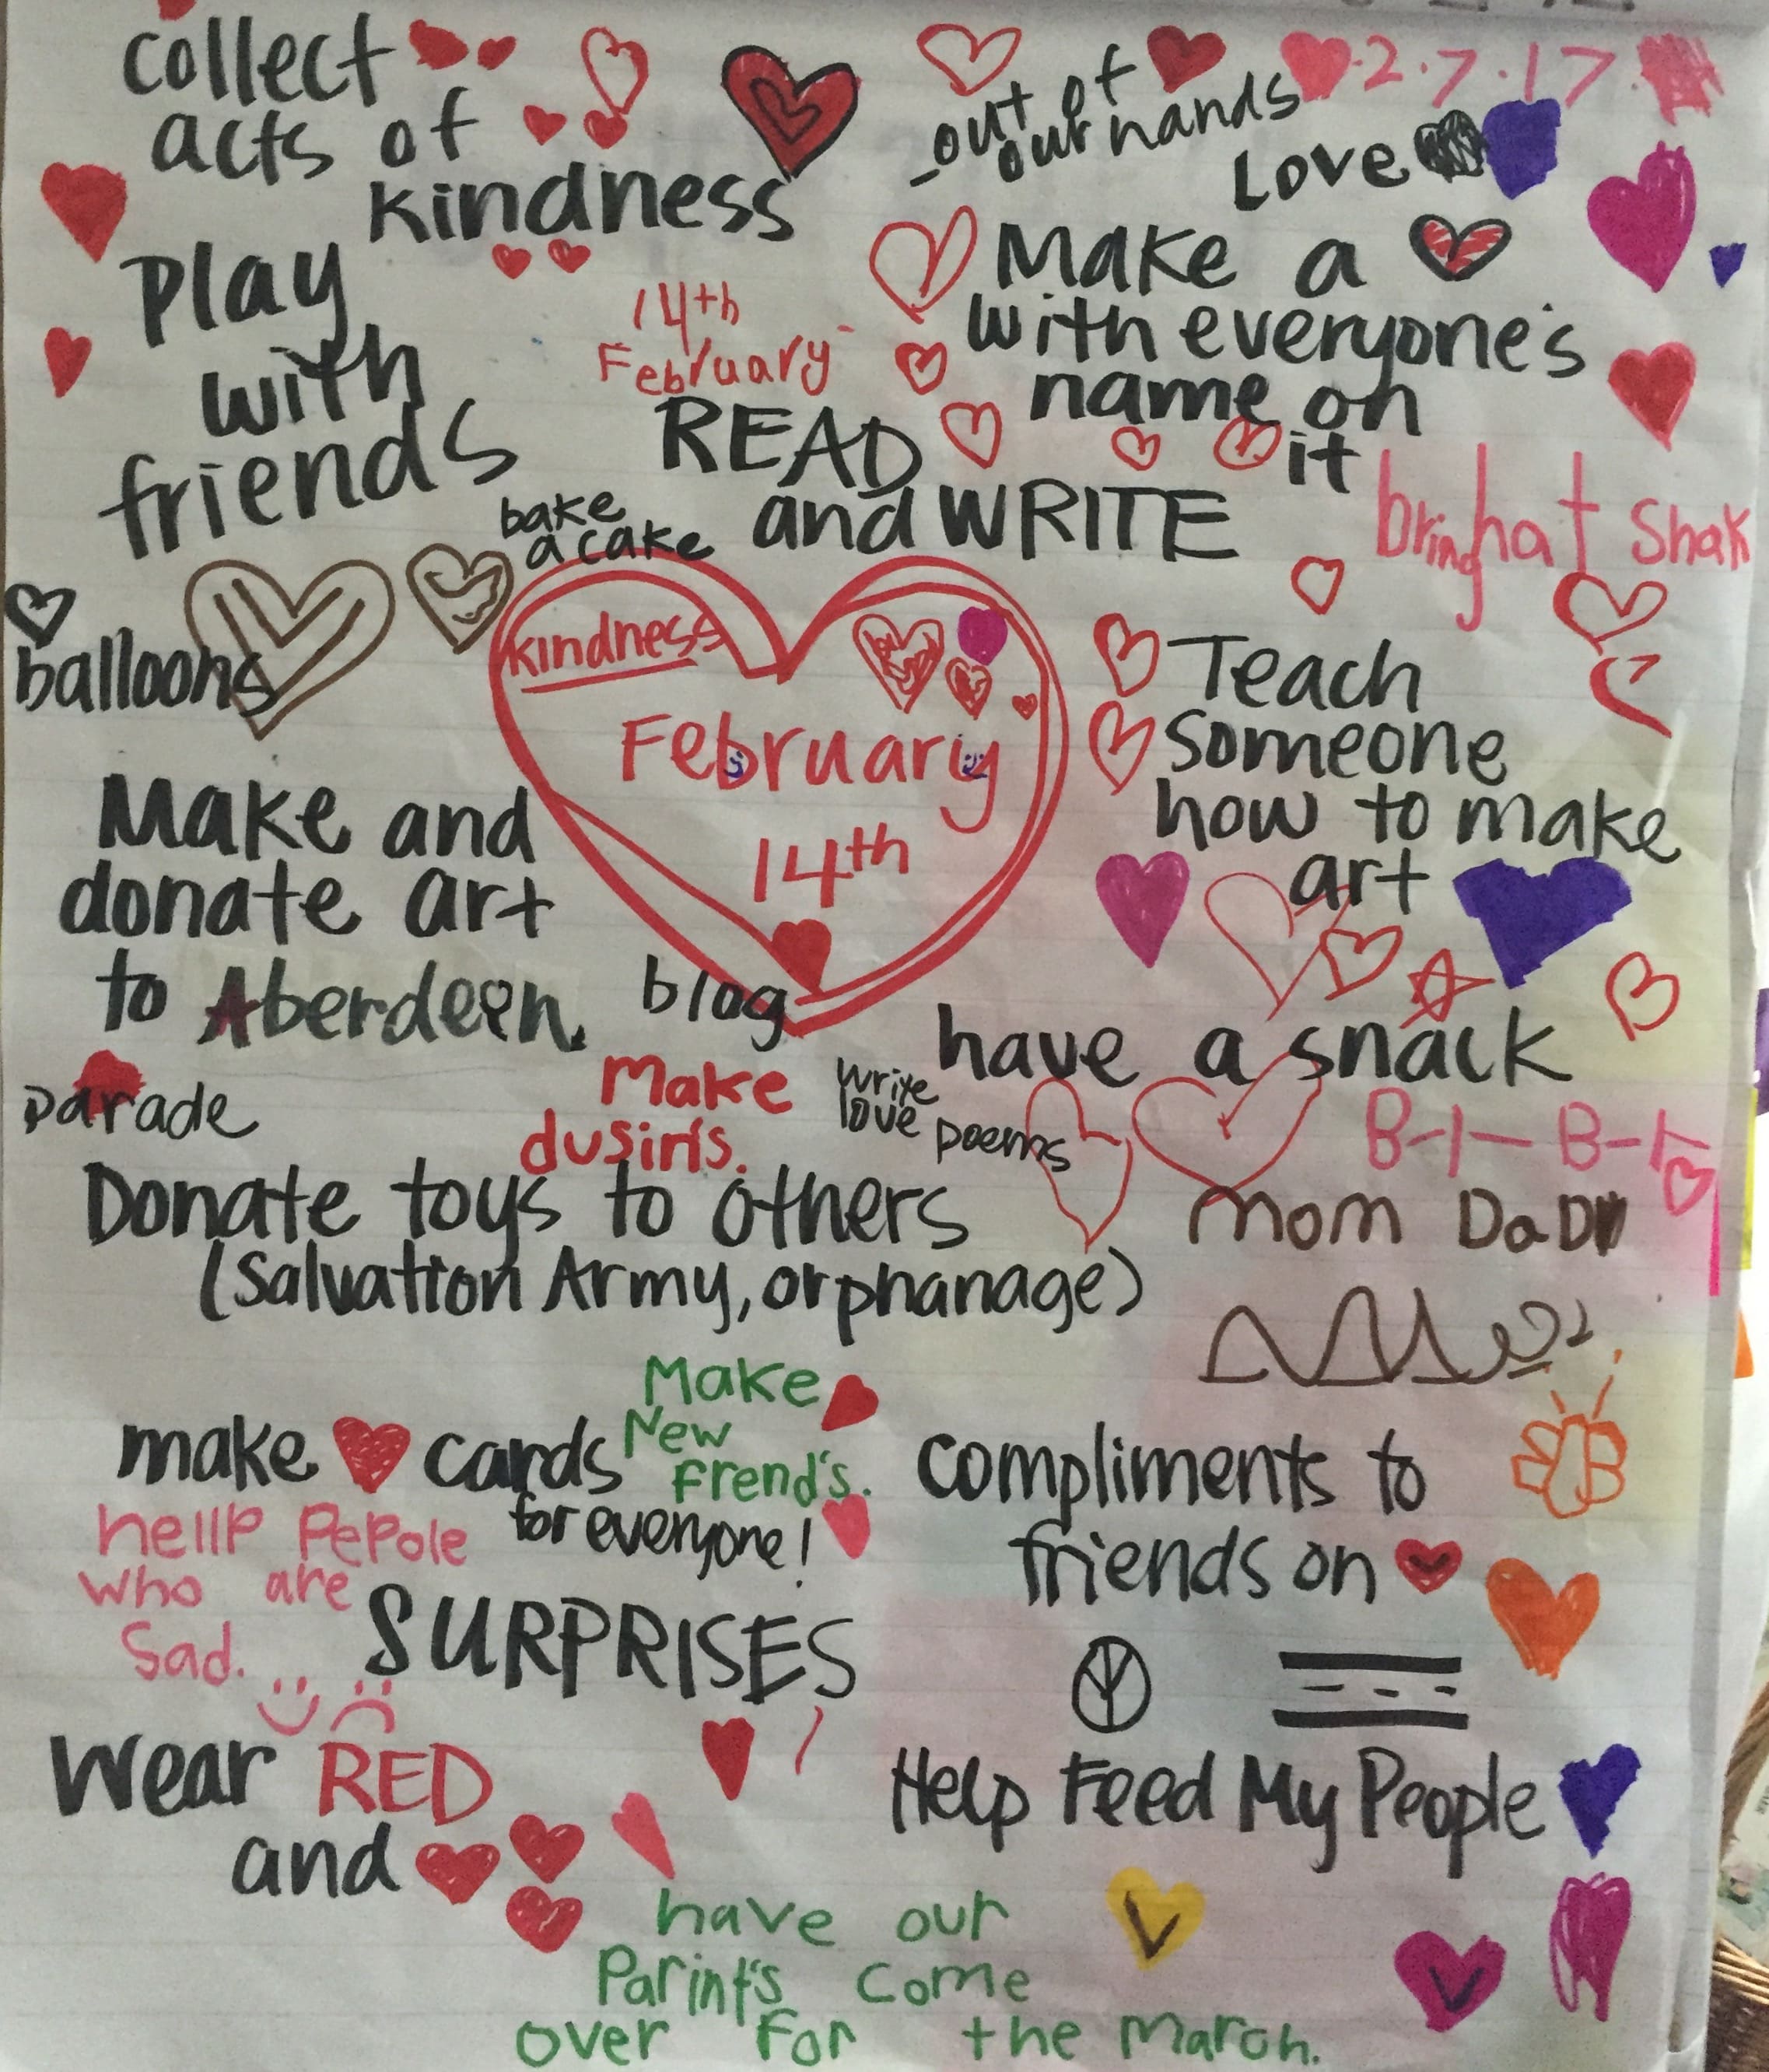 collect
acts of
kindness
-out of
our hands
Love
2.7.17
Play
with
friends
14th
February
Make a
with everyone's
name on
it
READ
and WRITE
bring hat Shak
bake
a cake
balloons
kindness
February
14th
Teach
Someone
how to make
art
Make and
donate art
to Aberdeen.
blog
have a snack
parade
Make
dusirts.
write
love poems
B-I-B-
Mom DaD
Donate toys to others
(Salvation Army, orphanage)
Make
New
Frend's.
make cards
for everyone!
hellP PePole
who are
Sad.
compliments to
friends on
SURPRISES
Wear RED
and
Help Feed My People
have our
Parint's come
over for the March.